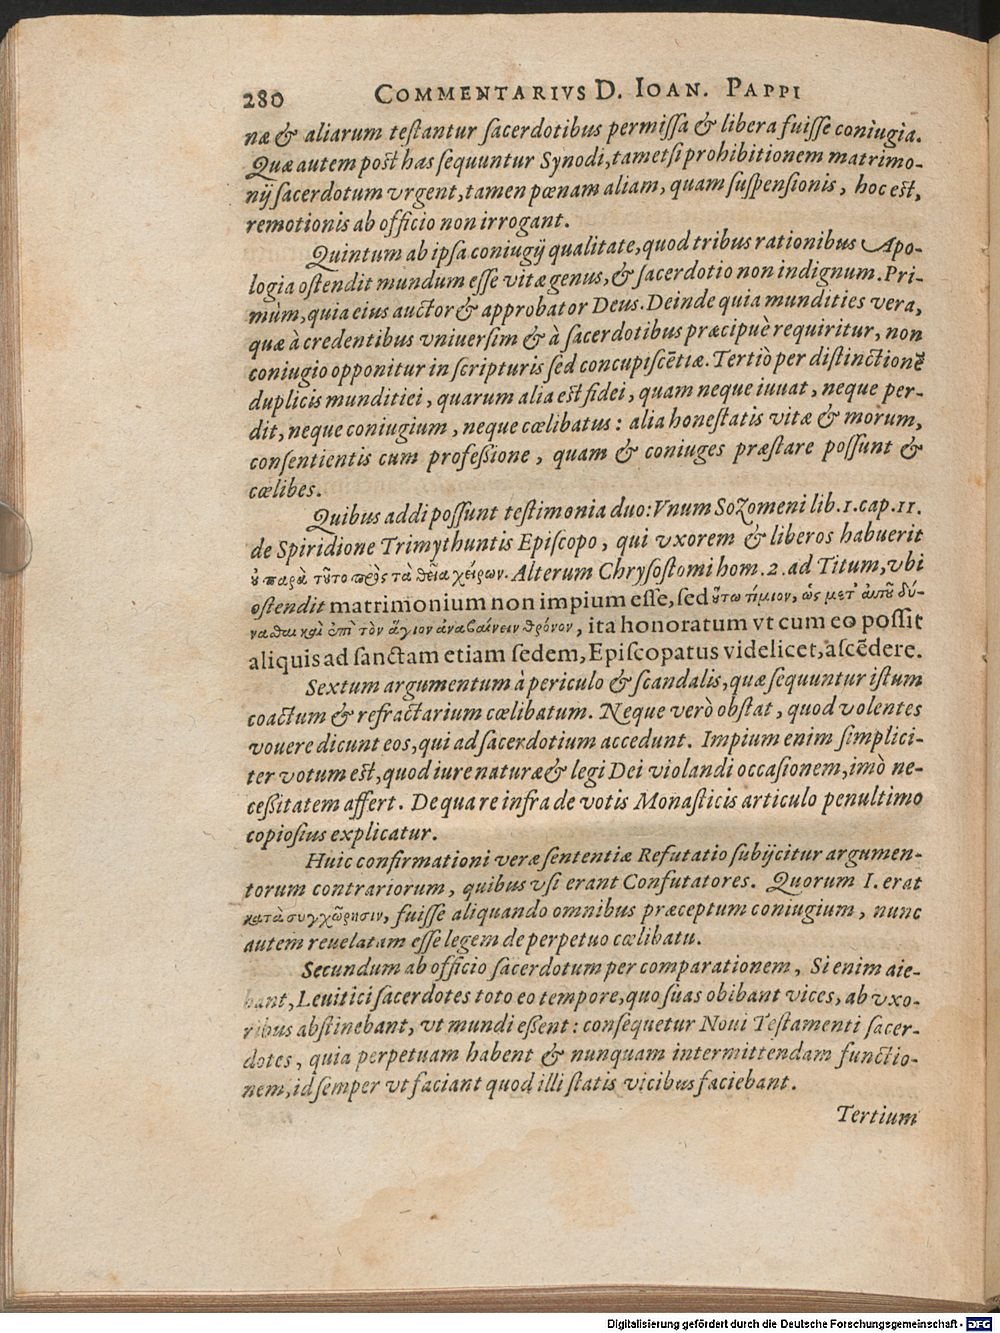 280 COMMENTARIVS D. IOAN. PAPPI
næ & aliarum teſtantur ſacerdotibus permiſſa & libera fuiſſe coniugia.
Quæ autem poſt has ſequuntur Synodi, tametſi prohibitionem matrimo-
nij ſacerdotum vrgent, tamen pœnam aliam, quam ſuſpenſionis, hoc eſt,
remotionis ab officio non irrogant.
Quintum ab ipſa coniugij qualitate, quod tribus rationibus Apo-
logia oſtendit mundum eſſe vitæ genus, & ſacerdotio non indignum. Pri-
mùm, quia eius auctor & approbator Deus. Deinde quia mundities vera,
quæ à credentibus vniuerſim & à ſacerdotibus præcipuè requiritur, non
coniugio opponitur in ſcripturis ſed concupiſcẽtiæ. Tertiò per diſtinctionẽ
duplicis munditiei, quarum alia eſt fidei, quam neque iuuat, neque per-
dit, neque coniugium, neque cœlibatus: alia honeſtatis vitæ & morum,
conſentientis cum profeßione, quam & coniuges præſtare poſſunt &
cœlibes.
Quibus addi poſſunt teſtimonia duo: Vnum Sozomeni lib. 1. cap. 11.
de Spiridione Trimythuntis Epiſcopo, qui vxorem & liberos habuerit
ὀ παρὰ τῦτο πρὸς τὰ θεῖα χείρων. Alterum Chryſoſtomi hom. 2. ad Titum, vbi
oſtendit matrimonium non impium eſſe, ſed ὅτω τίμιον, ὡς μετ' αὐτῦ δύ-
ναθαι καὶ ἐπὶ τὸν ἅγιον ἀναβαίνειν θρόνον, ita honoratum vt cum eo poſſit
aliquis ad ſanctam etiam ſedem, Epiſcopatus videlicet, aſcẽdere.
Sextum argumentum à periculo & ſcandalis, quæ ſequuntur iſtum
coactum & refractarium cœlibatum. Neque verò obſtat, quod volentes
vouere dicunt eos, qui ad ſacerdotium accedunt. Impium enim ſimplici-
ter votum eſt, quod iure naturæ & legi Dei violandi occaſionem, imò ne-
ceßitatem affert. De qua re infra de votis Monaſticis articulo penultimo
copioſius explicatur.
Huic confirmationi veræ ſententiæ Refutatio ſubijcitur argumen-
torum contrariorum, quibus vſi erant Confutatores. Quorum I. erat
κατὰ συγχώρησιν, fuiſſe aliquando omnibus præceptum coniugium, nunc
autem reuelatam eſſe legem de perpetuo cœlibatu.
Secundum ab officio ſacerdotum per comparationem, Si enim aie-
bant, Leuitici ſacerdotes toto eo tempore, quo ſuas obibant vices, ab vxo-
ribus abſtinebant, vt mundi eßent: conſequetur Noui Teſtamenti ſacer-
dotes, quia perpetuam habent & nunquam intermittendam functio-
nem, id ſemper vt faciant quod illi ſtatis vicibus faciebant.
Tertium
Digitalisierung gefördert durch die Deutsche Forschungsgemeinschaft - DFG